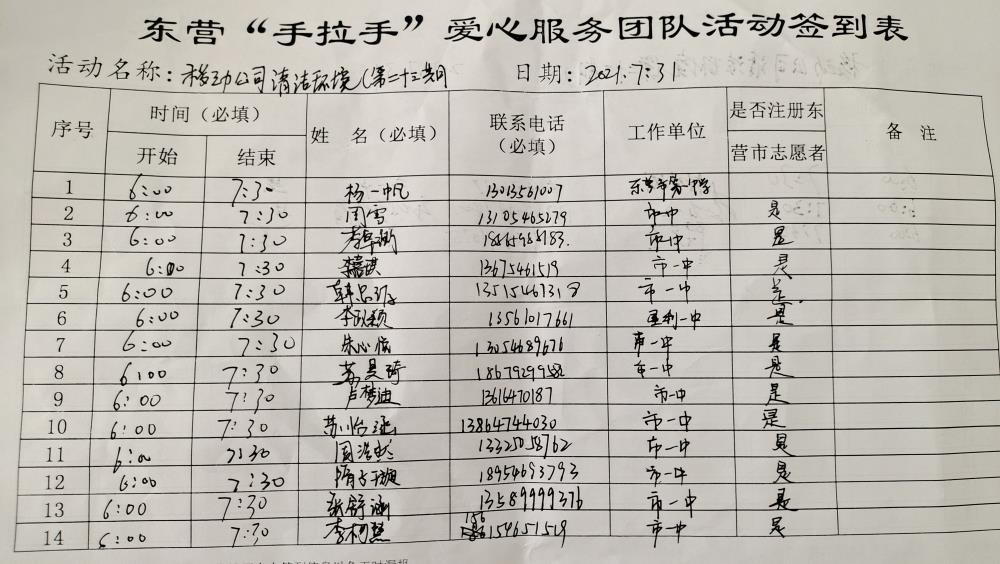 东营“手拉手”爱心服务团队活动签到表
活动名称：移动公司清洁环境（第二十三期） 日期：2021.7.31
序号 时间（必填） 姓 名（必填） 联系电话（必填） 工作单位 是否注册东营市志愿者 备 注
开始 结束
1 6:00 7:30 杨一帆 13013561007
2 6:00 7:30 周雪 13105465279 市中 是
3 6:00 7:30 市中 是
4 6:00 7:30 13675461519 市一中 是
5 6:00 7:30 13515467318 市一中 是
6 6:00 7:30 13561017661 胜利一中 是
7 6:00 7:30 朱心怡 13054689676 市一中 是
8 6:00 7:30 市一中 是
9 6:00 7:30 卢梦迪 13616470187 市一中 是
10 6:00 7:30 13864744030 市一中 是
11 6:00 7:30 13325058762 市一中 是
12 6:00 7:30 18954693793 市一中 是
13 6:00 7:30 张舒涵 13589999376 市一中 是
14 6:00 7:30 市一中 是